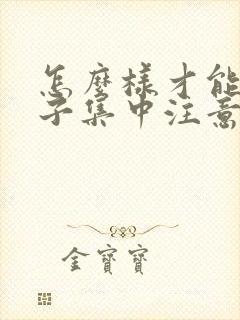 怎麼樣才能
子集中注意
金寶寶